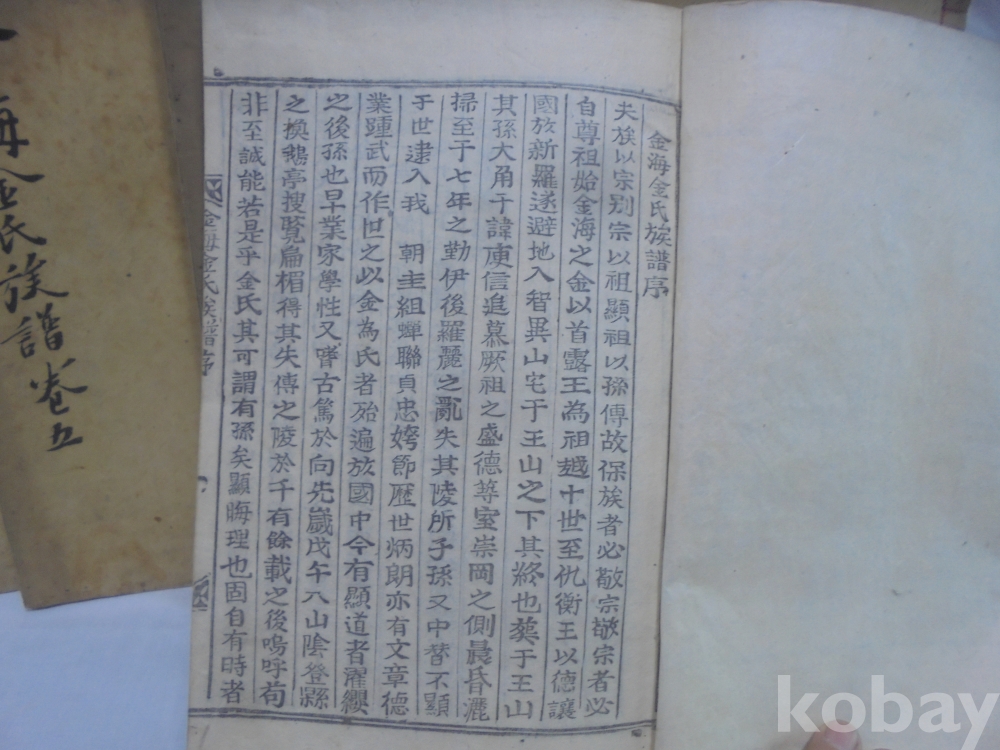 金海金氏族譜序
夫族以宗別宗以祖顯祖以孫傳故保族者必敬宗敬宗者必
自尊祖始金海之金以首露王為祖越十世至仇衡王以德讓
國於新羅遂避地入智異山宅于王山之下其終也葬于王山
其孫大角干諱庾信追慕厥祖之盛德等室崇岡之側晨昏灑
掃至于七年之勤伊後羅麗之亂失其陵所子孫又中替不顯
于世逮入我 朝圭組蟬聯貞忠姱節歷世炳朗亦有文章德
業踵武而作世之以金為氏者殆遍於國中今有顯道者濯纓
之後孫也早業家學性又嗜古篤於向先歲戊午入山陰登縣
之換鵝亭搜覽扁楣得其失傳之陵於千有餘載之後嗚呼苟
非至誠能若是乎金氏其可謂有孫矣顯晦理也固自有時者
金海金氏族譜序
海金氏族譜卷五
kobay